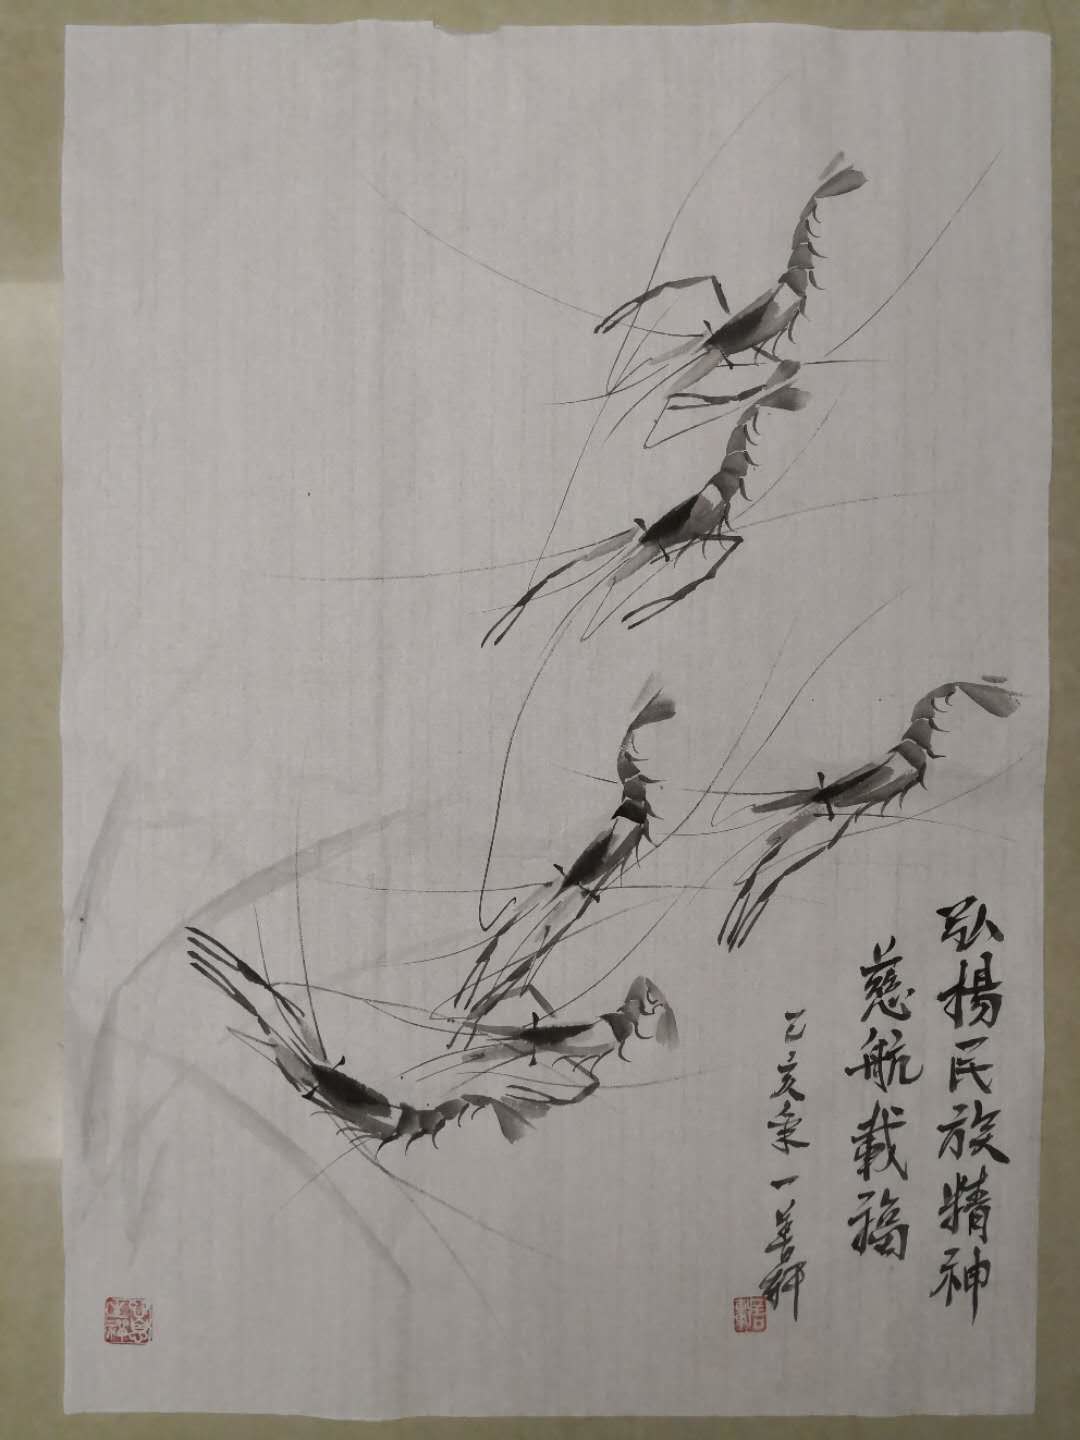 弘揚民族精神
慈航載福
己亥 一善